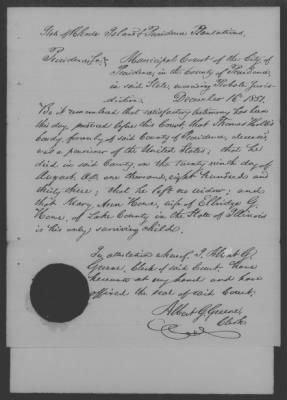 State of Rhode Island & Providence Plantations.
Providence Sc. Municipal Court of the City of
Providence, in the County of Providence
in said State, exercising Probate Juris-
diction. December 16th 1851.
Be it remembered that satisfactory testimony has been
this day produced before this Court, that Thomas
formerly of said County of Providence, deceased
was a pensioner of the United States; that he
died in said County, on the twenty ninth day of
August, A.D. one thousand, eight hundred and
thirty three; that he left no widow; and
that Mary Ann Hone, wife of Elbridge G.
Hone, of Lake County in the State of Illinois
is his only surviving child.
In attestation whereof, I, Albert G.
Greene, Clerk of said Court, have
hereunto set my hand and have
affixed the seal of said Court.
Albert G. Greene,
Clerk